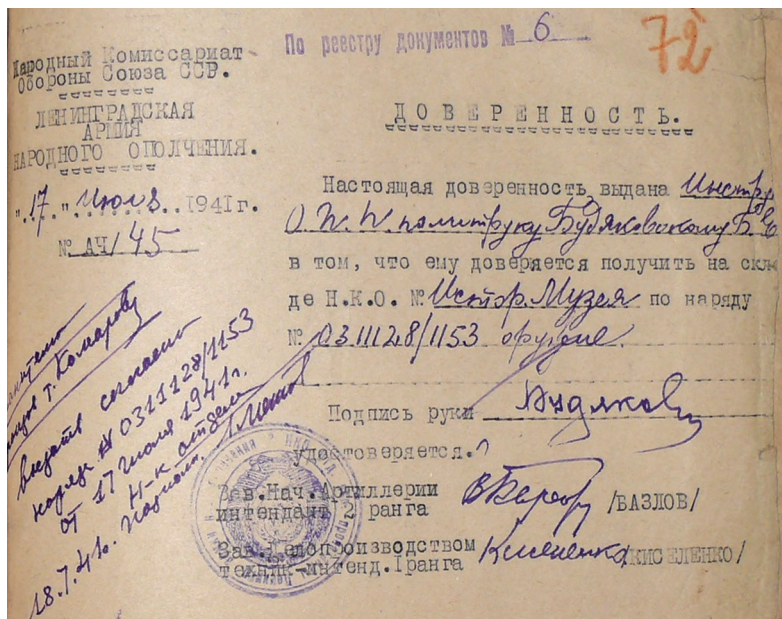 По реестру документов № 6
72
Народный Комиссариат
Обороны Союза ССР.
ЛЕНИНГРАДСКАЯ
АРМИЯ
НАРОДНОГО ОПОЛЧЕНИЯ.
"17" Июля 1941г.
№ АЧ/145
ДОВЕРЕННОСТЬ.
Настоящая доверенность выдана Инстр
политруку Будяковскому
в том, что ему доверяется получить на скла-
де Н.К.О. № Истор. Музея по наряду
№ 0311128/1153 орудие.
Подпись руки Будяков
удостоверяется.
Зав.Нач.Артиллерии
интендант 2 ранга /БАЗЛОВ/
Зав.Делопроизводством
техник-интенд.Iранга Киселенко /КИСЕЛЕНКО/
т. Комарову
выдать согласно
наряда № 0311128/1153
от 17 июля 1941г.
Н-к отдела
18.7.41г.